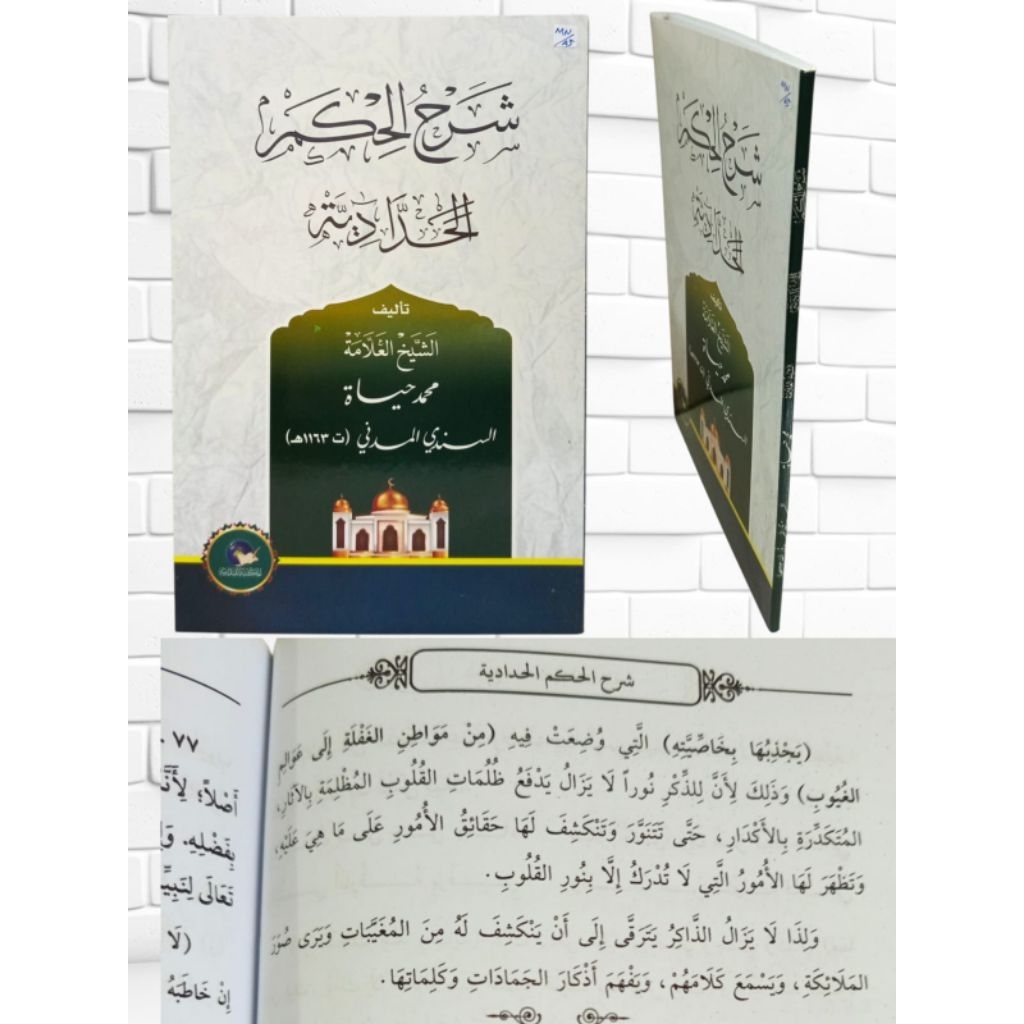 شَرْحُ الحِكَمْ
الحَدَّادِيَّة
تأليف
الشَّيْخ العَلَّامَة
محمد حياة
السندي المدني (ت ١١٦٣هـ)
شَرْحُ الحِكَمْ
الحَدَّادِيَّة
شرح الحكم الحدادية
(يَجْذِبُهَا بِخَاصِّيَّتِهِ) الَّتِي وُضِعَتْ فِيهِ (مِنْ مَوَاطِنِ الغَفْلَةِ إِلَى عَوَالِمِ
الغُيُوبِ) وَذَلِكَ لِأَنَّ لِلذِّكْرِ نُوراً لَا يَزَالُ يَدْفَعُ ظُلُمَاتِ القُلُوبِ المُظْلِمَةِ بِالآثَارِ،
المُتَكَدِّرَةِ بِالأَكْدَارِ، حَتَّى تَتَنَوَّرَ وَتَنْكَشِفَ لَهَا حَقَائِقُ الأُمُورِ عَلَى مَا هِيَ عَلَيْهِ،
وَتَظْهَرَ لَهَا الأُمُورُ الَّتِي لَا تُدْرَكُ إِلَّا بِنُورِ القُلُوبِ.
وَلِذَا لَا يَزَالُ الذَّاكِرُ يَتَرَقَّى إِلَى أَنْ يَنْكَشِفَ لَهُ مِنَ المُغَيَّبَاتِ وَيَرَى صُوَرَ
المَلَائِكَةِ، وَيَسْمَعَ كَلَامَهُمْ، وَيَفْهَمَ أَذْكَارَ الجَمَادَاتِ وَكَلِمَاتِهَا.
٧٧
أَصْلاً؛
بِفَضْلِهِ.
تَعَالَى
(لَا
إِنْ خَاطَبَهُ